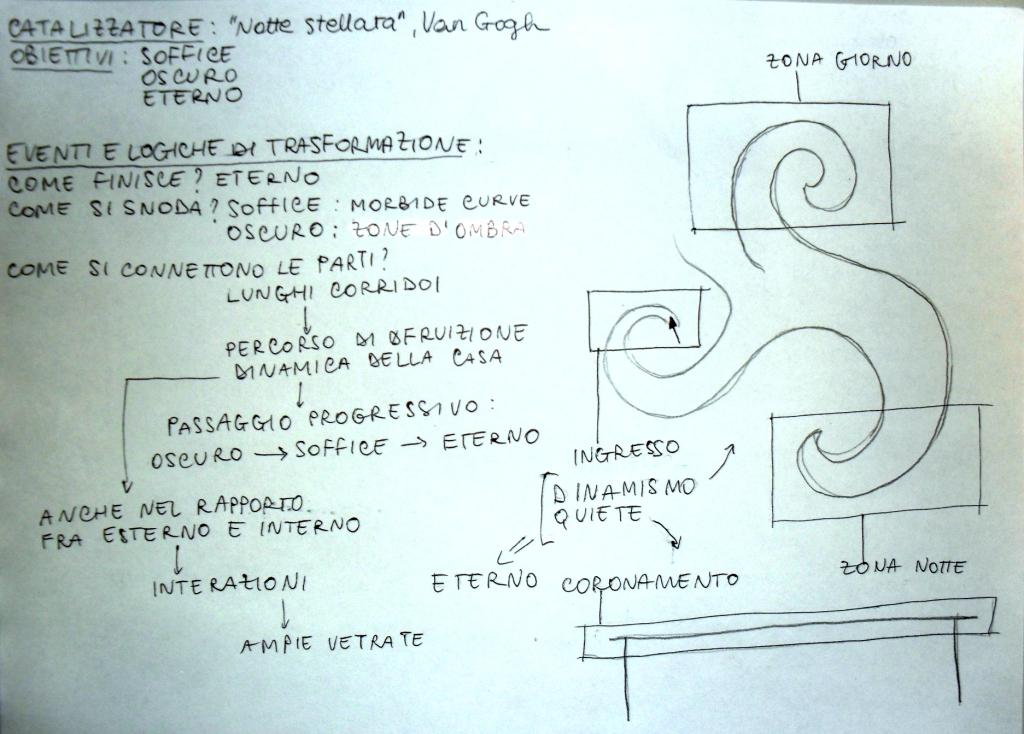 CATALIZZATORE: "Notte stellata", Van Gogh
OBIETTIVI: SOFFICE
OSCURO
ETERNO
EVENTI E LOGICHE DI TRASFORMAZIONE:
COME FINISCE? ETERNO
COME SI SNODA? SOFFICE: MORBIDE CURVE
OSCURO: ZONE D'OMBRA
COME SI CONNETTONO LE PARTI?
LUNGHI CORRIDOI
PERCORSO DI FRUIZIONE
DINAMICA DELLA CASA
PASSAGGIO PROGRESSIVO:
OSCURO → SOFFICE → ETERNO
ANCHE NEL RAPPORTO
FRA ESTERNO E INTERNO
INTERAZIONI
AMPIE VETRATE
ZONA GIORNO
INGRESSO
DINAMISMO
QUIETE
ETERNO
ZONA NOTTE
CORONAMENTO